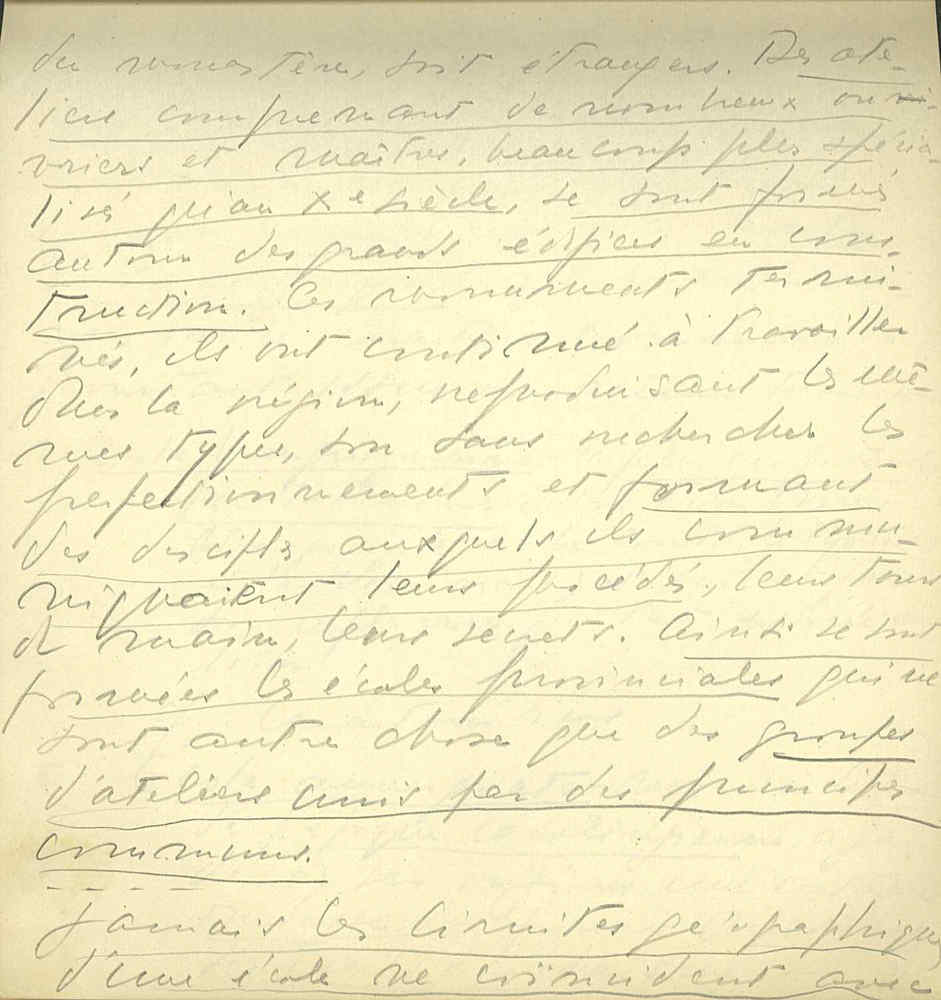 du monastère, soit étrangers. Des ate-
liers comprenant de nombreux ou
vriers et maîtres, beaucoup plus spécia-
lisés qu'au Xe siècle, se sont formés
autour des grands édifices en cons-
truction. Ces monuments termi-
nés, ils ont continué à travailler
dans la région, reproduisant les mê-
mes types, non sans rechercher les
perfectionnements et formant
des disciples auxquels ils commu-
niquaient leurs procédés, leurs tours
de main, leurs secrets. Ainsi se sont
formées les écoles provinciales qui ne
sont autre chose que des groupes
d'ateliers unis par des principes
communs.
Jamais les limites géographiques
d'une école ne coïncident avec